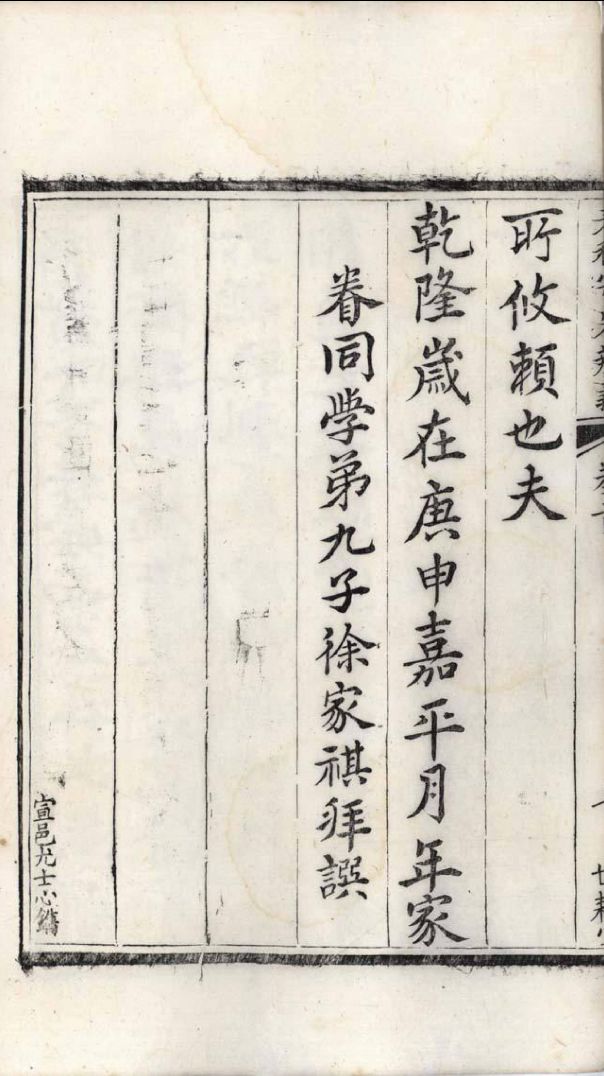 所攸賴也夫
乾隆嵗在庚申嘉平月年家
眷同學弟九子徐家祺拜譔
宣邑尤士心鐫